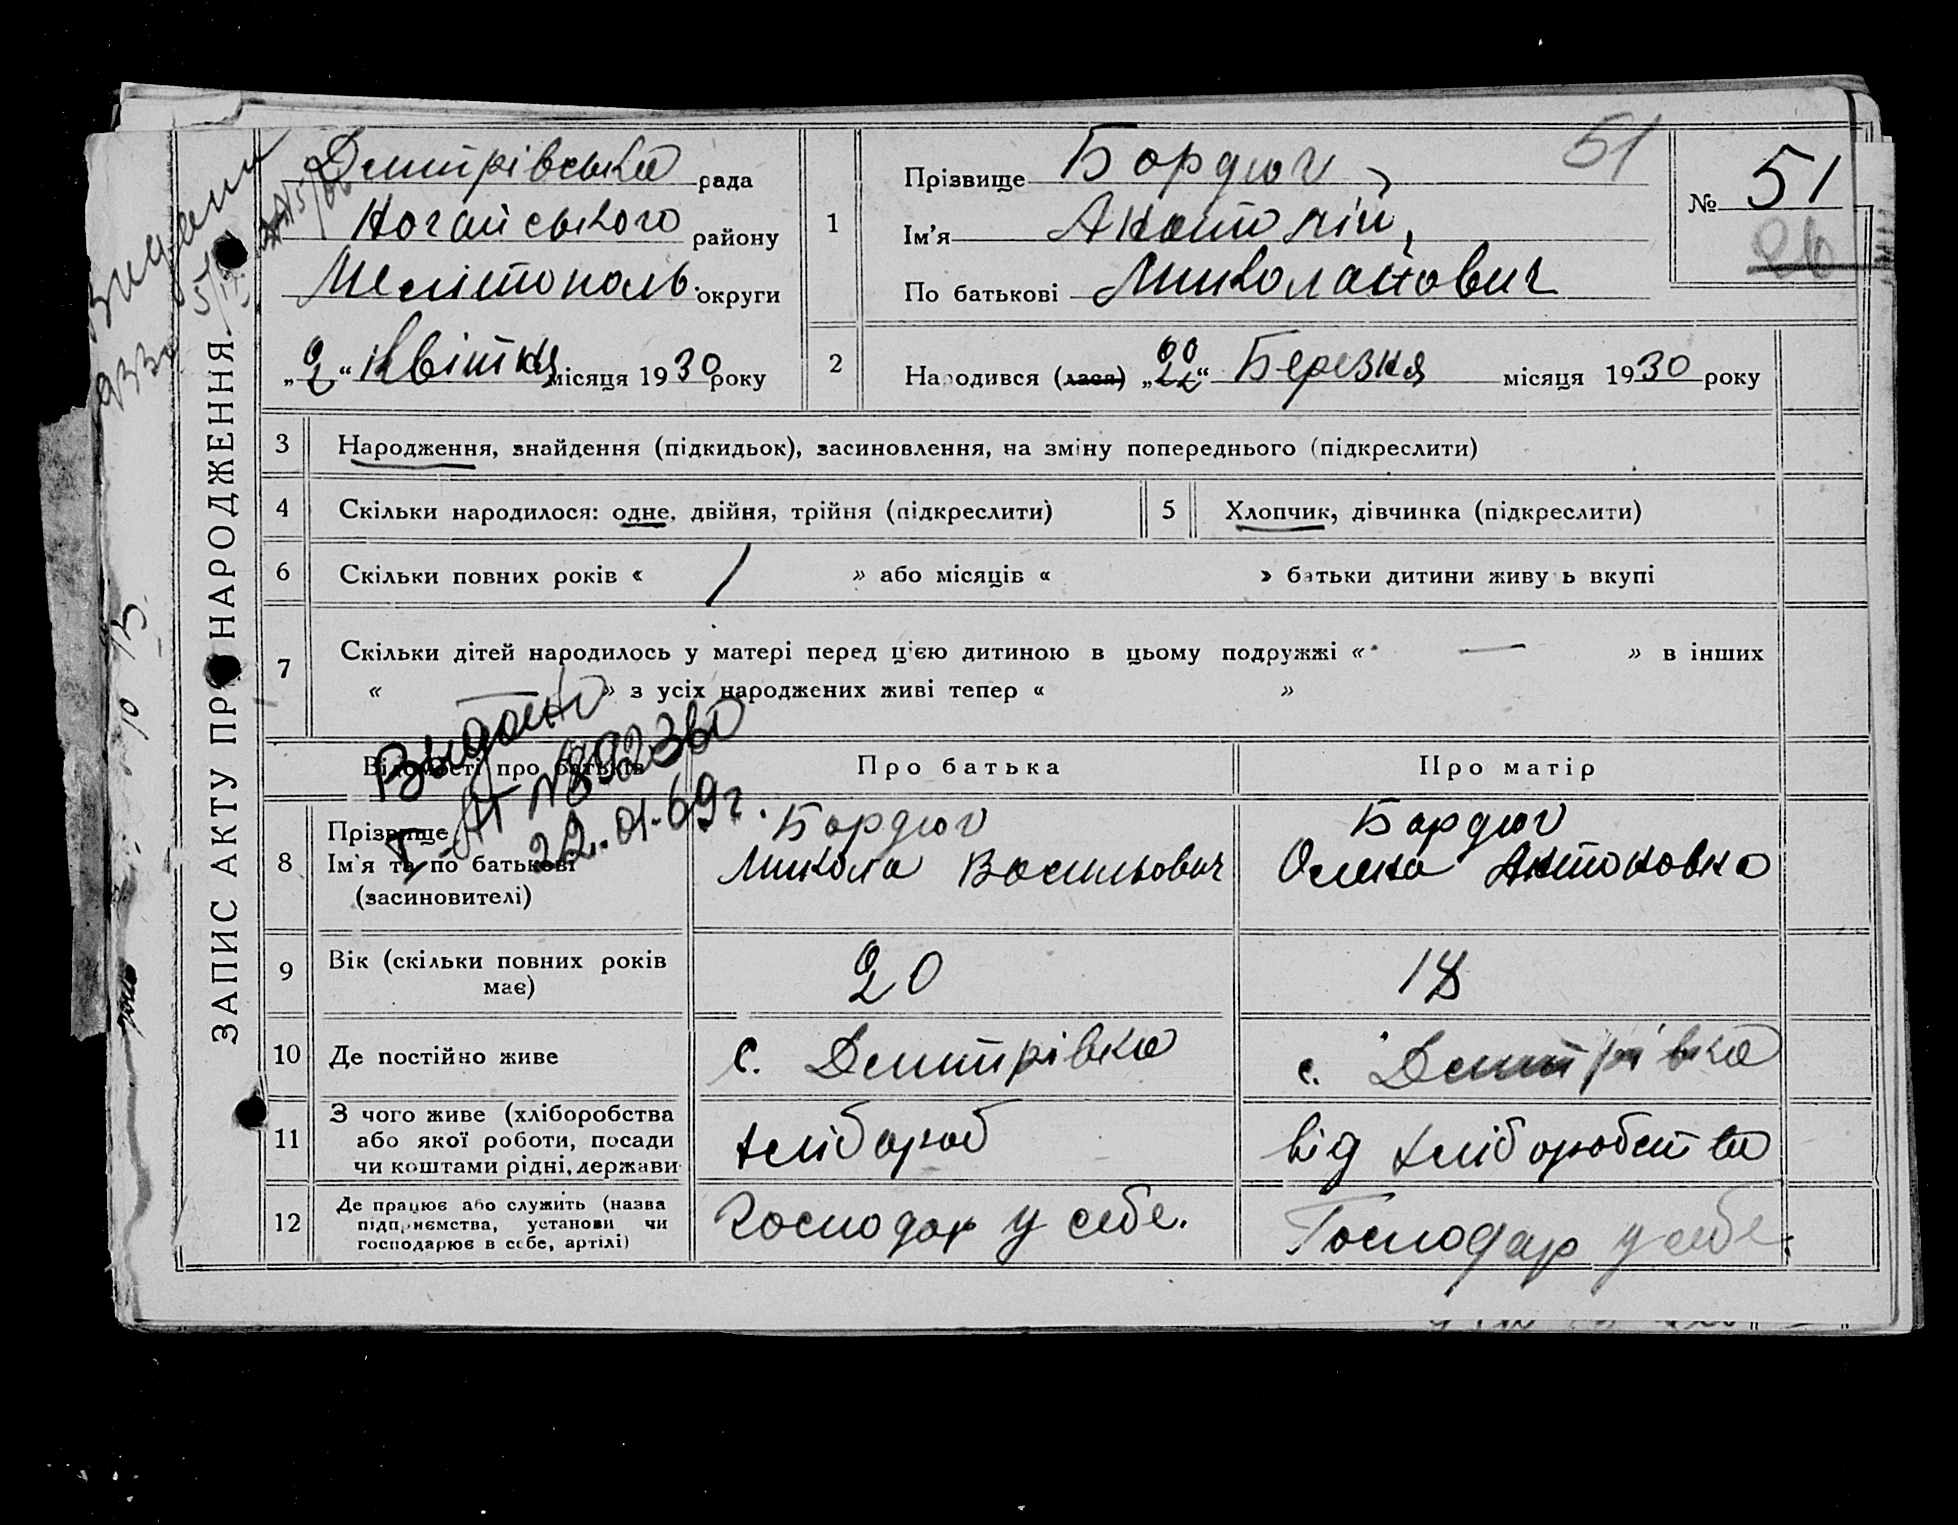 ЗАПИС АКТУ ПРО НАРОДЖЕННЯ.
Дмитрівська рада
Ногайського району
Мелітополь. округи
„2“ Квітня місяця 1930 року
1
Прізвище Бордюг,
Ім'я Анатолій,
По батькові Миколайович
51
№ 51
26
2
Народився (лася) „22“ Березня місяця 1930 року
3 Народження, знайдення (підкидьок), засиновлення, на зміну попереднього (підкреслити)
4 Скільки народилося: одне, двійня, трійня (підкреслити)
5 Хлопчик, дівчинка (підкреслити)
6 Скільки повних років « / » або місяців « » батьки дитини живуть вкупі
7 Скільки дітей народилось у матері перед ц'єю дитиною в цьому подружжі « — » в інших
« — » з усіх народжених живі тепер « »
Выдано
22.01.69г.
Відомості про батьків Про батька Про матір
8 Прізвище
Ім'я та по батькові
(засиновителі)
Бордюг
Микола Васильович
Бордюг
Олена Антоновна
9 Вік (скільки повних років
має)
20
18
10 Де постійно живе с. Дмитрівка с. Дмитрівка
11 З чого живе (хліборобства
або якої роботи, посади
чи коштами рідні, держави
хлібороб
від хліборобства
12 Де працює або служить (назва
підприємства, установи чи
господарює в себе, артілі)
Господар у себе.
Господар у себе.